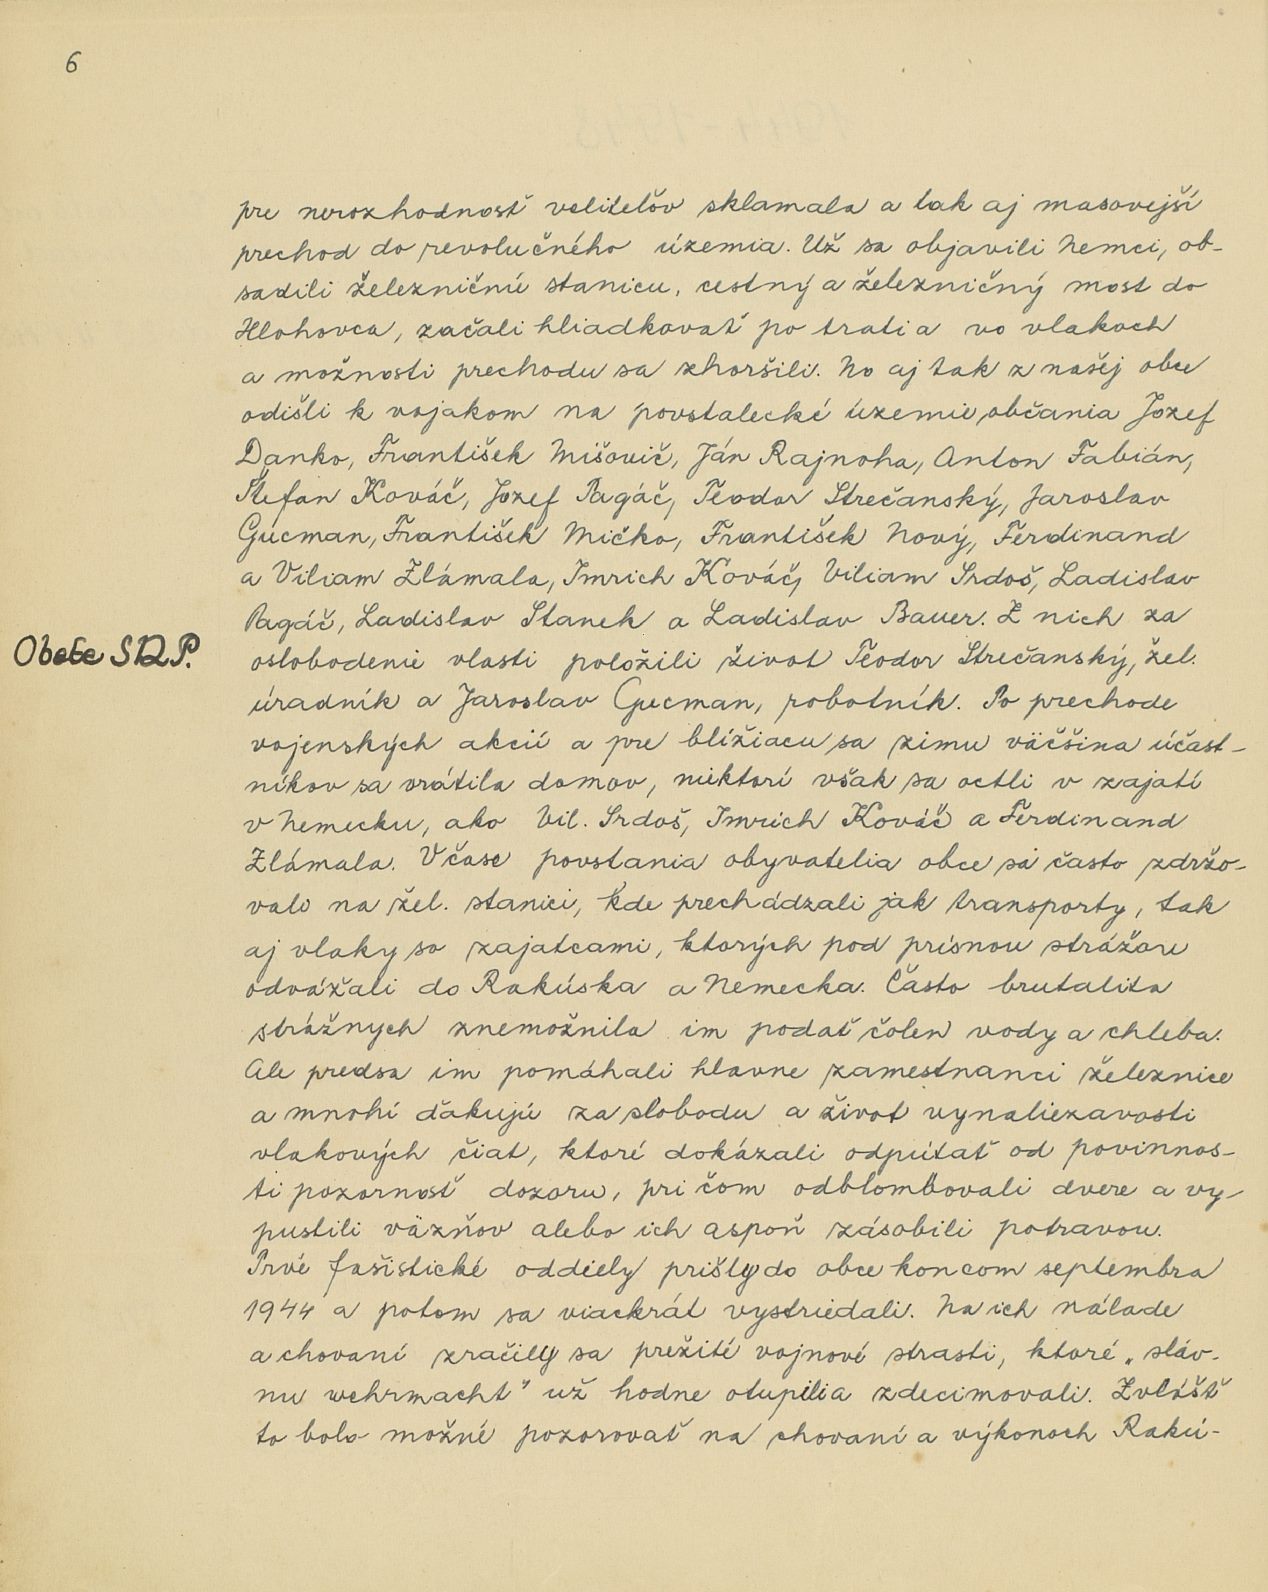 6
pre nerozhodnosť veliteľov sklamala a tak aj masovejší
prechod do revolučného územia. Už sa objavili Nemci, ob-
sadili železničnú stanicu, cestný a železničný most do
Hlohovca, začali hliadkovať po trati a vo vlakoch
a možnosti prechodu sa zhoršili. No aj tak z našej obce
odišli k vojakom na povstalecké územie občania Jozef
Danko, František Mišovič, Ján Rajnoha, Anton Fabián,
Štefan Kováč, Jozef Pagáč, Teodor Strečanský, Jaroslav
Gucman, František Mičko, František Nový, Ferdinand
a Viliam Zlámala, Imrich Kováč, Viliam Srdoš, Ladislav
Pagáč, Ladislav Stanek a Ladislav Bauer. Z nich za
Obete SNP.
oslobodenie vlasti položili život Teodor Strečanský, žel.
úradník a Jaroslav Gucman, robotník. Po prechode
vojenských akcií a pre blížiacu sa zimu väčšina účast-
níkov sa vrátila domov, niektorí však sa octli v zajatí
v Nemecku, ako Vil. Srdoš, Imrich Kováč a Ferdinand
Zlámala. V čase povstania obyvatelia obce sa často zdržo-
vali na žel. stanici, kde prechádzali jak transporty, tak
aj vlaky so zajatcami, ktorých pod prísnou strážou
odvážali do Rakúska a Nemecka. Často brutalita
strážnych znemožnila im podať čo len vody a chleba.
Ale predsa im pomáhali hlavne zamestnanci železnice
a mnohí ďakujú za slobodu a život vynaliezavosti
vlakových čiat, ktoré dokázali odpútať od povinnos-
ti pozornosť dozoru, pri čom odblombovali dvere a vy-
pustili väzňov alebo ich aspoň zásobili potravou.
Prvé fašistické oddiely prišly do obce koncom septembra
1944 a potom sa viackrát vystriedali. Na ich nálade
a chovaní zračily sa prežité vojnové strasti, ktoré „sláv-
nu wehrmacht" už hodne otupili a zdecimovali. Zvlášť
to bolo možné pozorovať na chovaní a výkonoch Rakú-